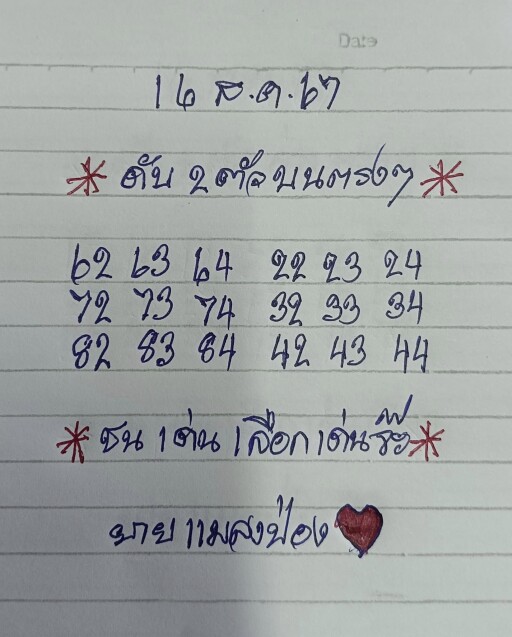 Date
16 ส.ค.67
* ดับ 2 ตัวบนตรงๆ *
62 63 64 22 23 24
72 73 74 32 33 34
82 83 84 42 43 44
* ชน เด่น เลือกเด่น *
นาย แมลงป่อง